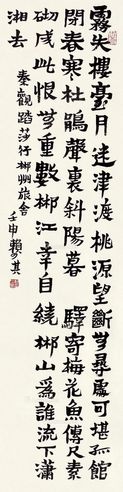 霧失樓臺月迷津渡桃源望斷無尋處可堪孤館
閉春寒杜鵑聲裏斜陽暮 驛寄梅花魚傳尺素
砌成此恨無重數郴江幸自繞郴山爲誰流下瀟
湘去
秦觀踏莎行郴州旅舍
壬申賴少其